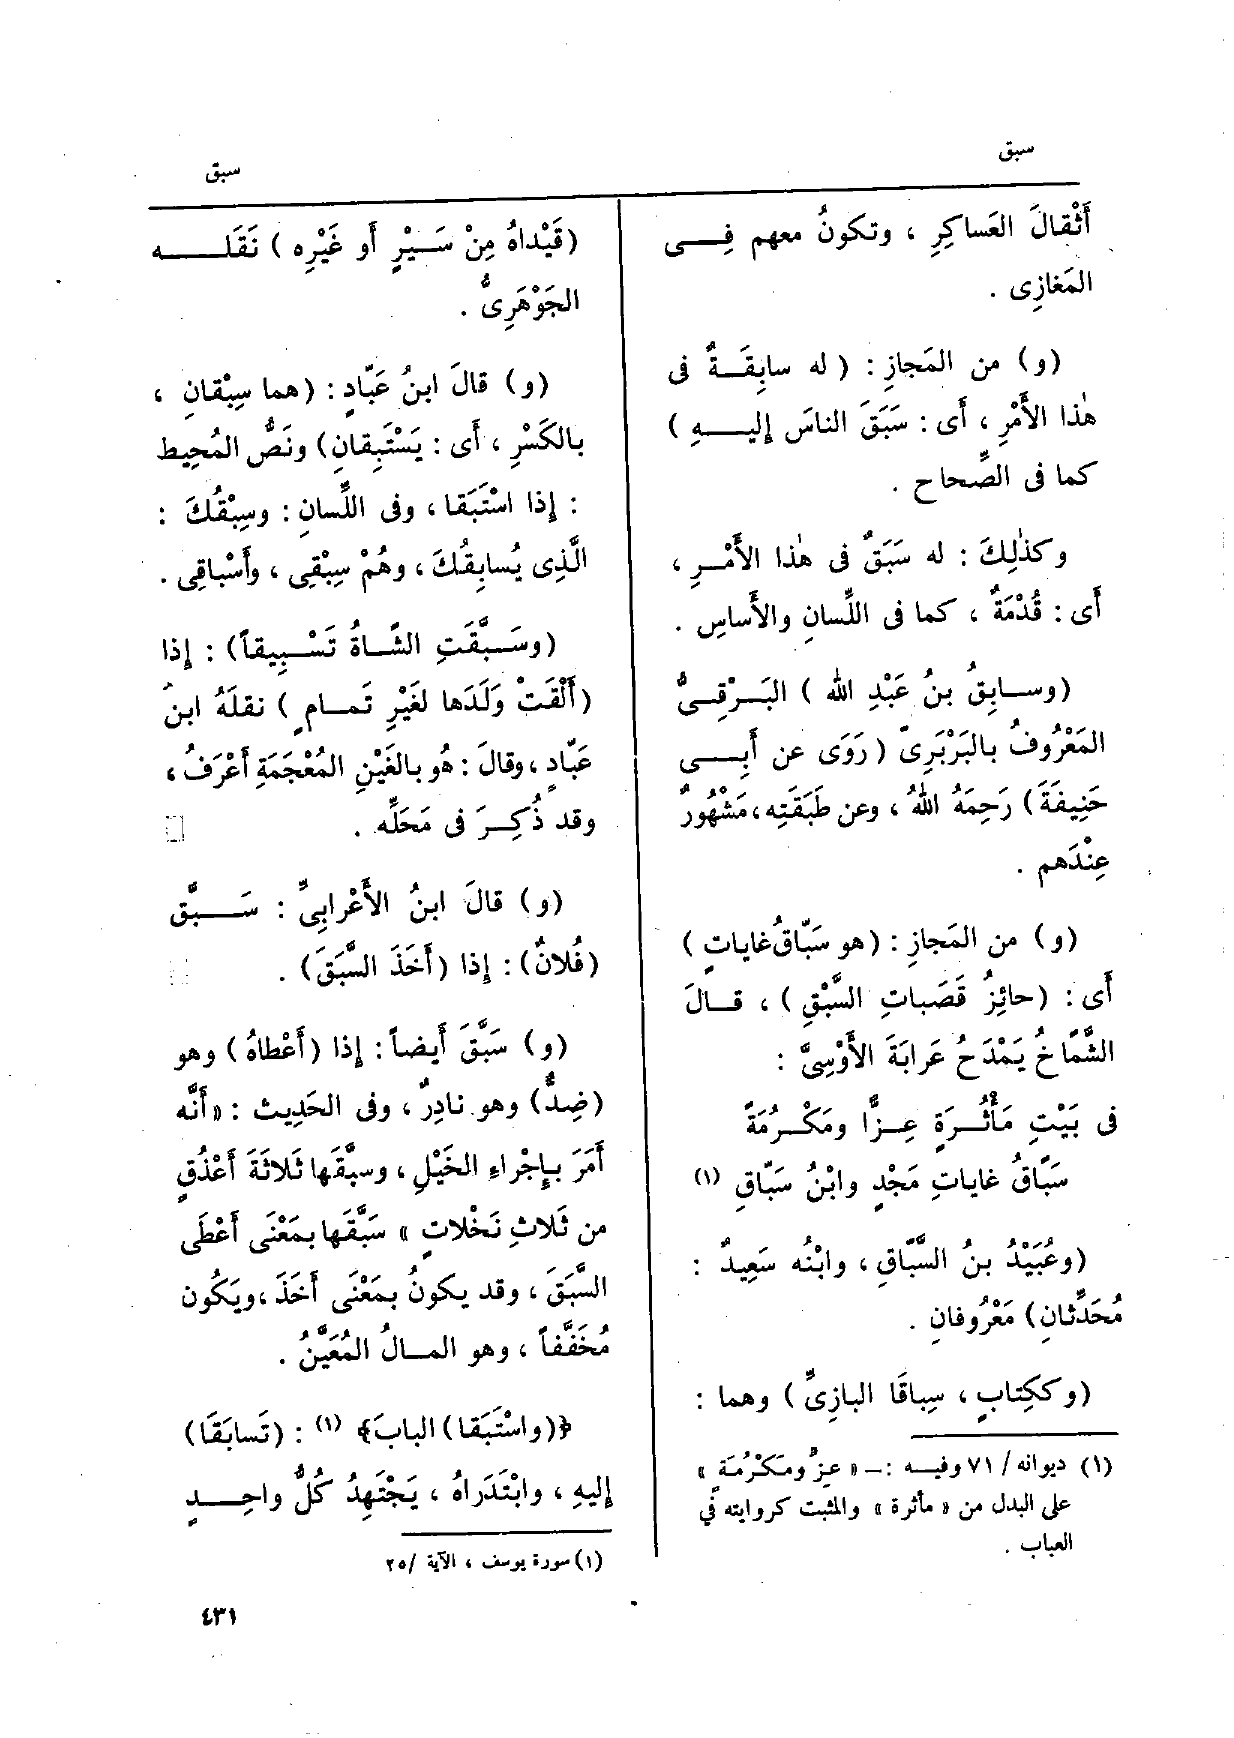 سبق
سبق
أَثْقالَ العَساكِرِ ، وتكونُ معهم فِــى
المَغازِى .
(و) من المَجازِ : ( له سابِقَــةٌ فى
هٰذا الأَمْرِ ، أَى : سَبَقَ الناسَ إِليــهِ )
كما فى الصِّحاحِ .
وكذٰلِكَ : له سَبَقٌ فى هٰذا الأَمْــرِ ،
أَى : قُدْمَةٌ ، كما فى اللِّسانِ والأَساسِ .
(وســابِقُ بنُ عَبْدِ الله ) البَــرْقِىُّ
المَعْرُوفُ بالبَرْبَرِىّ ( رَوَى عن أَبِــى
حَنِيفَةَ) رَحِمَهُ اللهُ ، وعن طَبَقَتِه ، مَشْهُورٌ
عِنْدَهم .
(و) من المَجازِ : (هو سَبّاقُ غاياتٍ )
أَى : (حائِزُ قَصَباتِ السَّبْقِ ) ، قــالَ
الشَّمّاخُ يَمْدَحُ عَرابَةَ الأَوْسِىَّ :
فى بَيْتِ مَأْثُــرَةٍ عِــزًّا ومَكْــرُمَةً
سَبّاقُ غاياتِ مَجْدٍ وابْنُ سَبّاقِ (١)
(وعُبَيْدُ بنُ السَّبّاقِ ، وابْنُه سَعِيدٌ :
مُحَدِّثانِ) مَعْرُوفانِ .
(وككِتابٍ ، سِباقَا البازِىِّ ) وهما :
(١) ديوانه / ٧١ وفيــه :ــ « عِزٍّ ومَكْرُمَةٍ »
على البدل من « مأثرة » والمثبت كروايته فى
العباب .
(قَيْداهُ مِنْ سَــيْرٍ أَو غَيْرِه ) نَقَلَــه
الجَوْهَرِىُّ .
(و) قالَ ابنُ عَبّادٍ : (هما سِبْقانِ ،
بالكَسْرِ ، أَى : يَسْتَبِقانِ) ونَصُّ المُحِيط
: إِذا اسْتَبَقا ، وفى اللِّسانِ : وسِبْقُكَ :
الَّذِى يُسابِقُكَ ، وهُمْ سِبْقِى ، وأَسْباقِى .
(وسَــبَّقَتِ الشّــاةُ تَسْــبِيقاً) : إِذا
(أَلْقَتْ وَلَدَها لغَيْرِ تَمــامٍ ) نقلَهُ ابنُ
عَبّادٍ ، وقالَ : هُو بالغَيْنِ المُعْجَمَةِ أَعْرَفُ ،
وقد ذُكِــرَ فى مَحَلِّه .
(و) قالَ ابنُ الأَعْرابِىِّ : سَــبَّق
(فُلانٌ) : إِذا (أَخَذَ السَّبَقَ) .
(و) سَبَّقَ أَيضاً : إِذا (أَعْطاهُ) وهو
(ضِدٌّ) وهو نادِرٌ ، وفى الحَدِيث : « أَنَّه
أَمَرَ بإِجْراءِ الخَيْلِ ، وسبَّقَها ثَلاثَةَ أَعْذُقٍ
من ثَلاثِ نَخْلاتٍ » سَبَّقَها بمَعْنَى أَعْطَى
السَّبَقَ ، وقد يكونُ بمَعْنَى أَخَذَ ، ويَكُون
مُخَفَّفاً ، وهو المــالُ المُعَيَّنُ .
﴿(واسْتَبَقا) البابَ﴾ (١) : (تَسابَقَا)
إِليهِ ، وابْتَدَراهُ ، يَجْتَهِدُ كُلُّ واحِــدٍ
(١) سورة يوسف ، الآية /٢٥
٤٣١